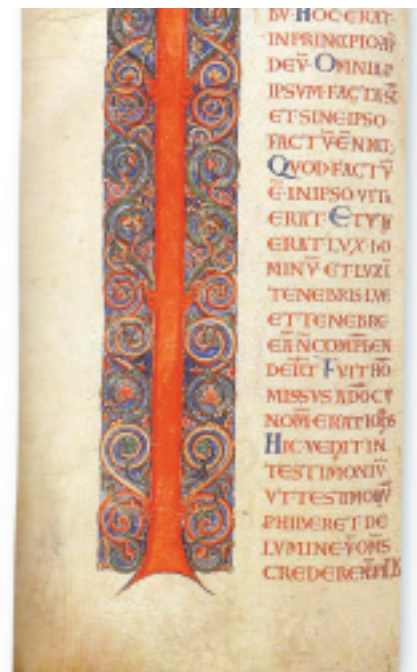 DV· HOC ERAT·
IN PRINCIPIO AP
DEV̄· OMNIA P
IPSVM FACTA SC̄
ET SINE IPSO
FACTV̄ Ē NHL·
QVOD FACTV̄
Ē· IN IPSO VITA
ERAT· ET VITA
ERAT LVX HO
MINV̄· ET LVX Ī
TENEBRIS LVC
ET TENEBRE
EĀ N̄ COMPHEN
DERT̄ FVIT HO
MISSVS A DO CV
NOM̄ ERAT IOHS
HIC VENIT IN
TESTIMONIV̄·
VT TESTIMONIV̄
PHIBERET DE
LVMINE· VOMS
CREDERENT